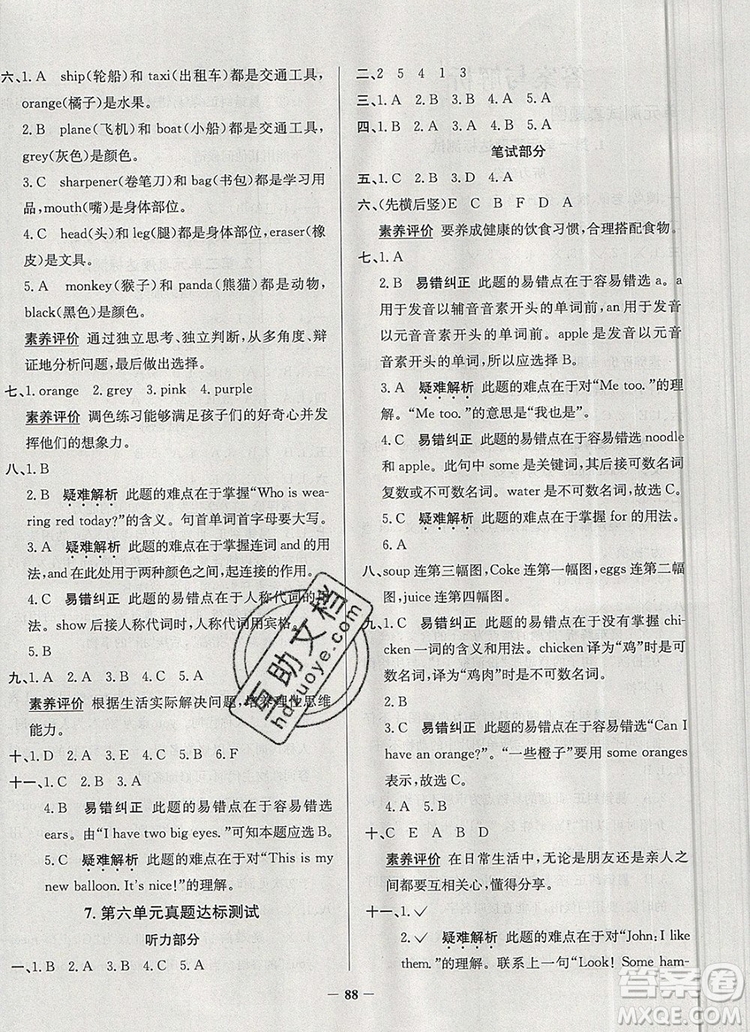 六、1. A　ship(轮船)和 taxi(出租车)都是交通工具，
orange(橘子)是水果。
2. B　plane(飞机)和 boat(小船)都是交通工具，
grey(灰色)是颜色。
3. C　sharpener(卷笔刀)和 bag(书包)都是学习用
品，mouth(嘴)是身体部位。
4. C　head(头)和 leg(腿)都是身体部位，eraser(橡
皮)是文具。
5. A　monkey(猴子)和 panda(熊猫)都是动物，
black(黑色)是颜色。
素养评价　通过独立思考、独立判断，从多角度、辩
证地分析问题，最后做出选择。
七、1. orange　2. grey　3. pink　4. purple
素养评价　调色练习能够满足孩子们的好奇心并发
挥他们的想象力。
八、1. B
2. B　疑难解析　此题的难点在于掌握“Who is wea-
ring red today?”的含义。句首单词首字母要大写。
3. A　疑难解析　此题的难点在于掌握连词 and 的用
法，and 在此处用于两种颜色之间，表示并列关系。
4. C　易错纠正　此题的易错点在于人称代词的用
法。show 后接人称代词时，人称代词用宾格。
5. B
九、1. B　2. A　3. A　4. C　5. A
素养评价　根据生活实际解决问题，培养理性思维
能力。
十、1. D　2. A　3. C　4. B　5. B　6. F
十一、1. C　2. B　3. A
4. B　易错纠正　此题的易错点在于容易错选
ears。由“I have two big eyes.”可知本题应选 B。
5. C　疑难解析　此题的难点在于对“This is my
new balloon. It's nice!”的理解。
7. 第六单元真题达标测试
听力部分
一、1. A　2. C　3. C　4. B　5. A
二、2　5　4　1　3
三、1. C　2. B　3. C　4. C　5. A
四、1. B　2. A　3. B　4. A　5. A
笔试部分
五、1. C　2. B　3. D　4. A
六、(先横后竖)E　C　B　F　D　A
素养评价　要养成健康的饮食习惯，合理搭配食物。
七、1. A
2. B　易错纠正　此题的易错点在于容易错选 a。a
用于发音以辅音音素开头的单词前，an 用于发音
以元音音素开头的单词前。apple 是发音以元音
音素开头的单词，所以应选择 B。
3. A　疑难解析　此题的难点在于对“Me too.”的理
解。“Me too.”的意思是“我也是”。
4. C　易错纠正　此题的易错点在于容易错选 noodle
和 apple。此句中 some 是关键词，其后接可数名词
复数或不可数名词。water 是不可数名词，故选 C。
5. C　疑难解析　此题的难点在于掌握 for 的用法。
6. A
八、soup 连第三幅图，Coke 连第一幅图，eggs 连第二幅
图，juice 连第四幅图。
九、1. C　易错纠正　此题的易错点在于没有掌握 chi-
cken 一词的含义和用法。chicken 译为“鸡”时是可
数名词，译为“鸡肉”时是不可数名词。
2. B
3. C　易错纠正　此题的易错点在于容易错选“Can I
have an orange?”。“一些橙子”要用 some oranges
表示，故选 C。
4. A　5. B
十、C　E　A　B　D
素养评价　在日常生活中，无论是朋友还是亲人之
间都要相互关心、懂得分享。
十一、1. ✓
2. ✓　疑难解析　此题的难点在于对“John: I like
them.”的理解。联系上一句“Look! Some ham-
— 88 —
互助文档
hdzuoye.com
答案圈
MXQE.COM